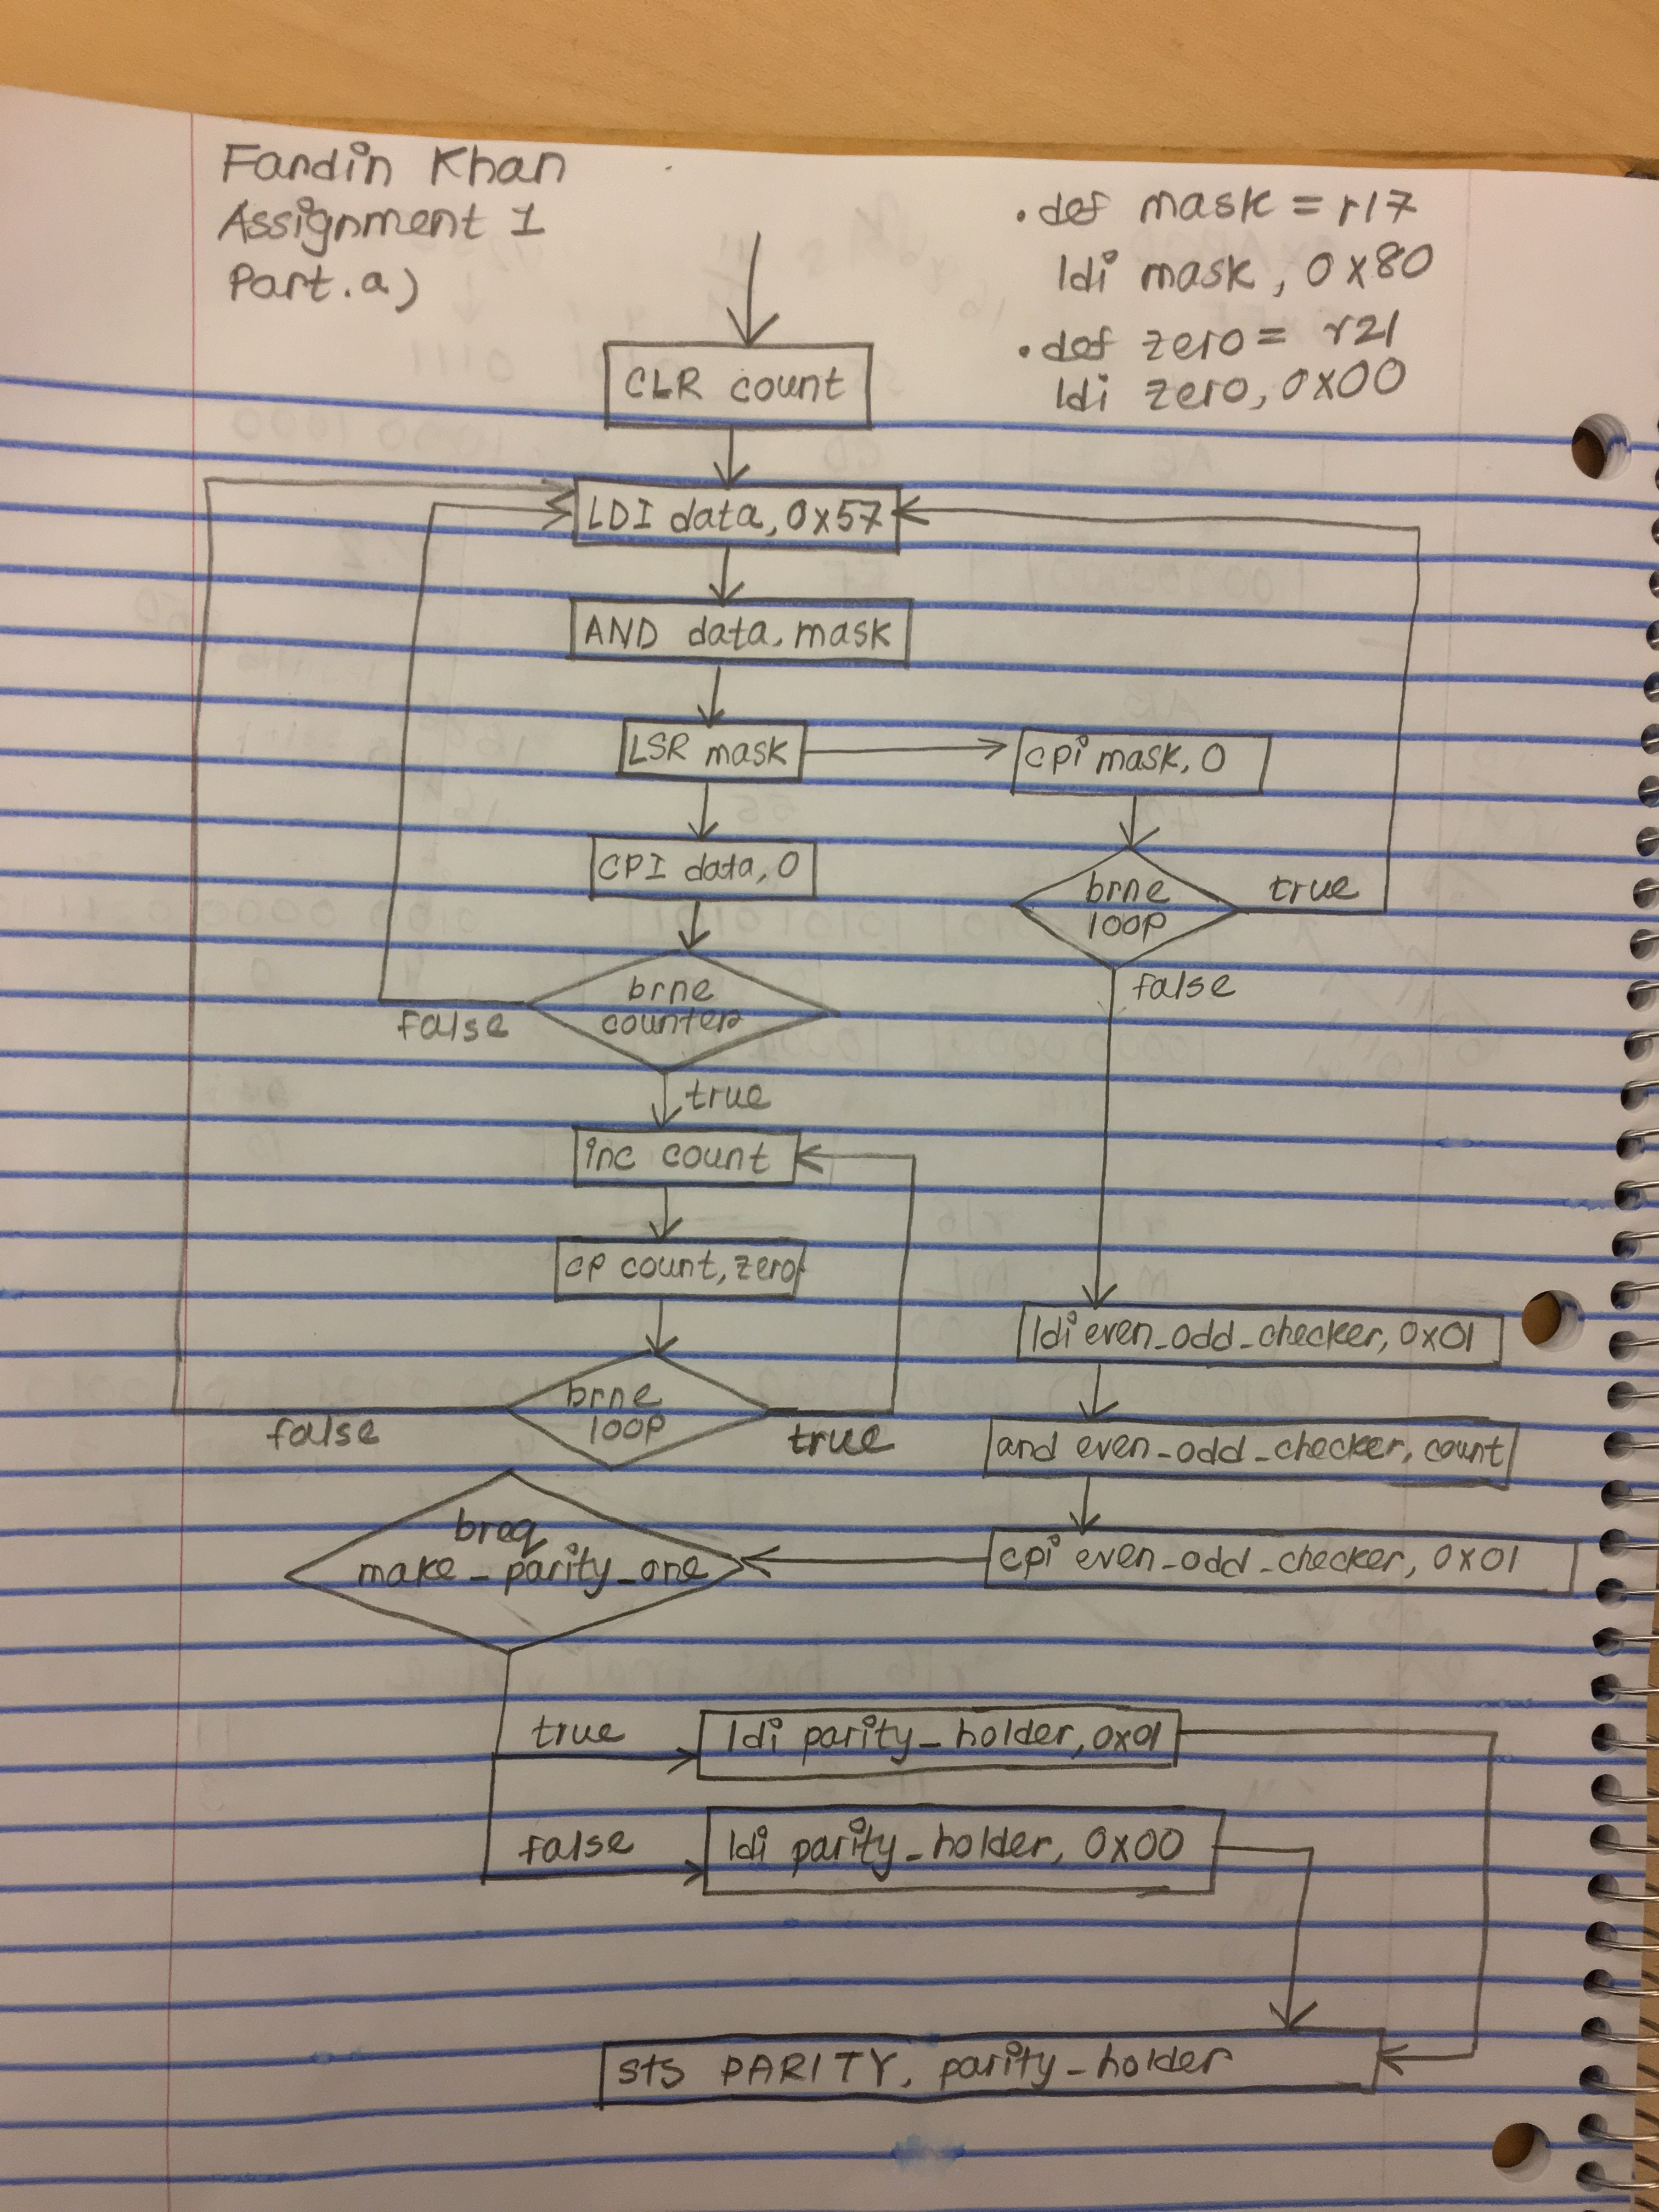 Fardin Khan
Assignment 1
Part.a)
.def mask = r17
ldi mask, 0x80
.def zero = r21
ldi zero, 0x00
CLR count
LDI data, 0x57
AND data, mask
LSR mask
cpi mask, 0
CPI data, 0
brne
loop
true
false
brne
counter
false
true
inc count
cp count, zero
ldi even_odd_checker, 0x01
brne
loop
false
true
and even_odd_checker, count
breq
make_parity_one
cpi even_odd_checker, 0x01
true
ldi parity_holder, 0x01
false
ldi parity_holder, 0x00
sts PARITY, parity_holder